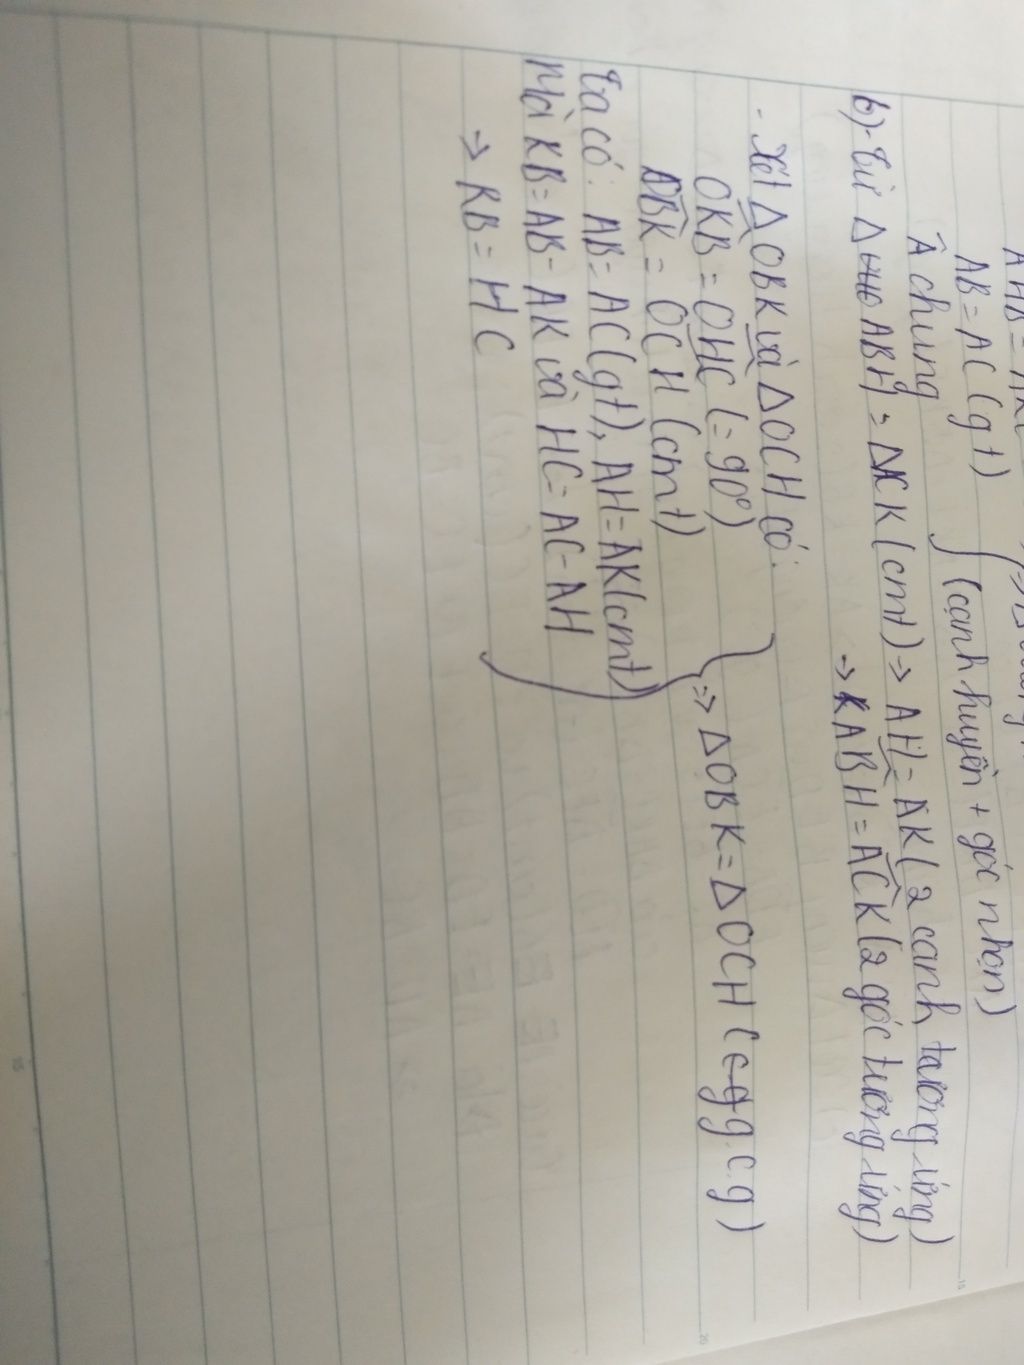 AHB = AKC
AB = AC (gt)
 chung
(cạnh huyền + góc nhọn)
b) - Từ Δ ABH = ΔACK (cmt) => AH = AK (2 cạnh tương ứng)
=> ABH = ACK (2 góc tương ứng)
- Xét Δ OBK và Δ OCH có:
OKB = OHC (= 90°)
OBK = OCH (cmt)
=> ΔOBK = ΔOCH (g.c.g)
Ta có: AB = AC (gt), AH = AK (cmt)
Mà KB = AB - AK và HC = AC - AH
=> KB = HC